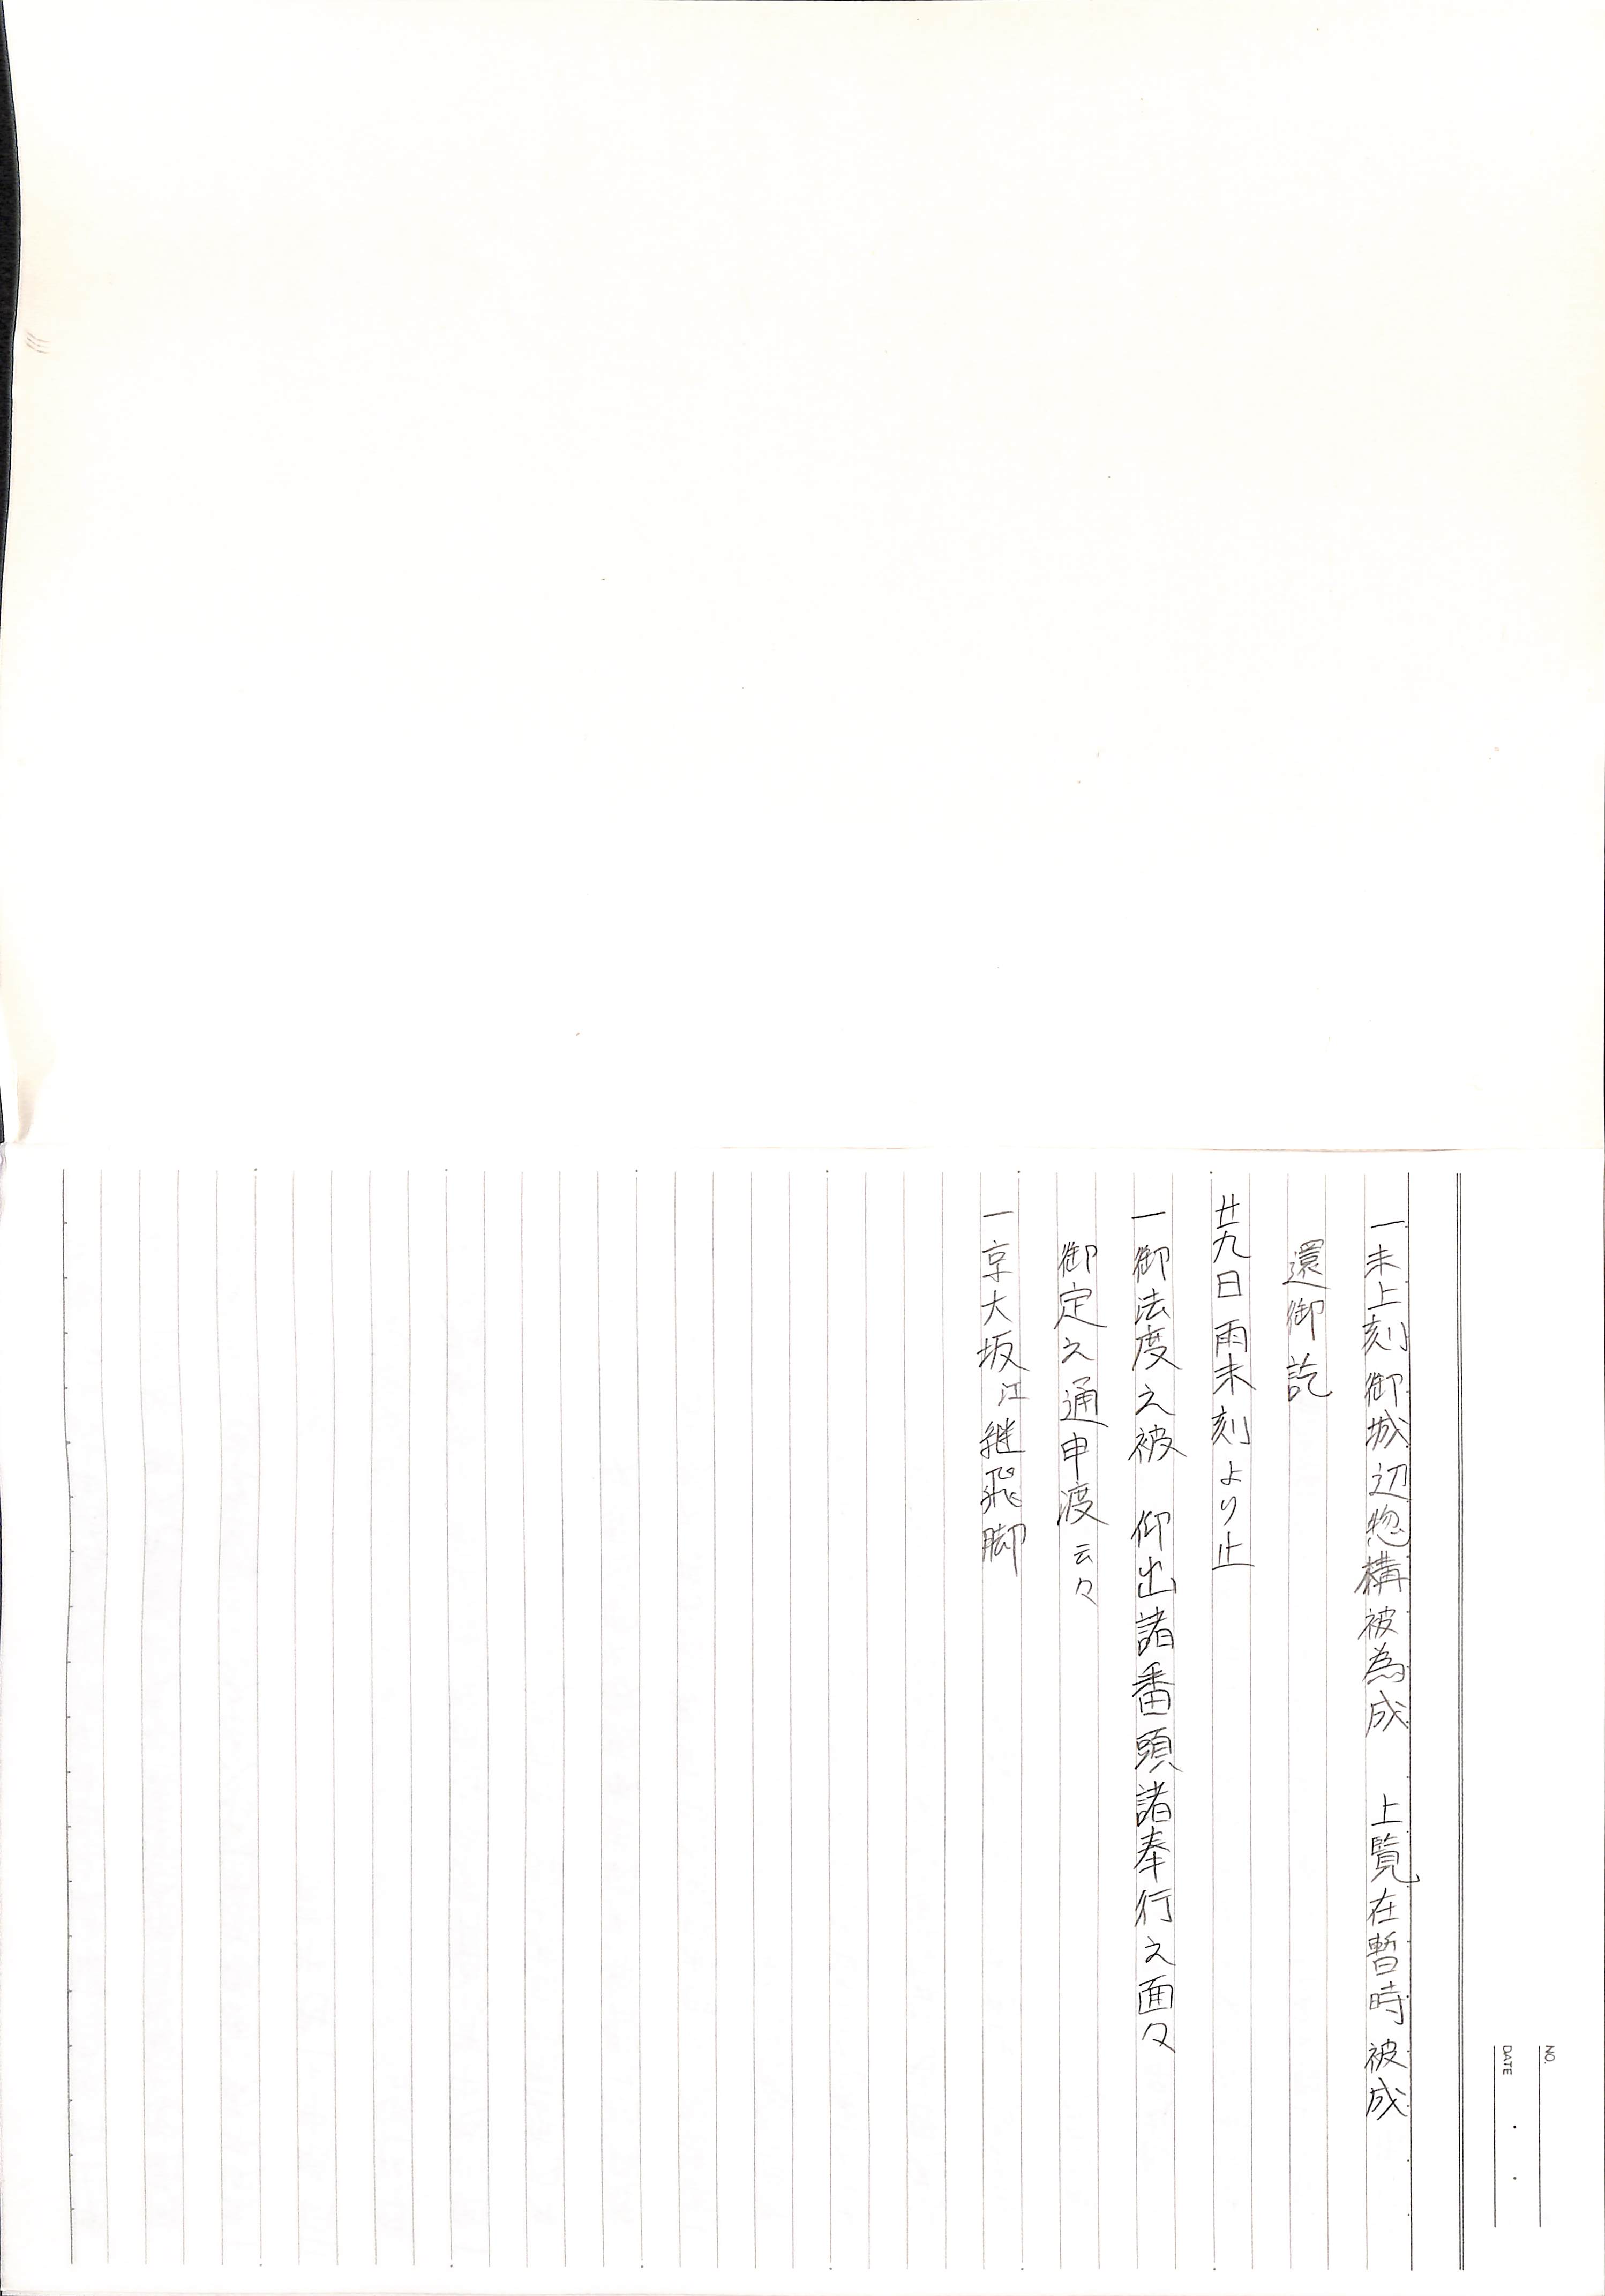 NO.
DATE
一未上刻御城辺惣構被為成　上覧在暫時被成
還御訖
廿九日雨未刻より止
一御法度之被　仰出諸番頭諸奉行之面々
御定之通申渡云々
一京大坂江継飛脚